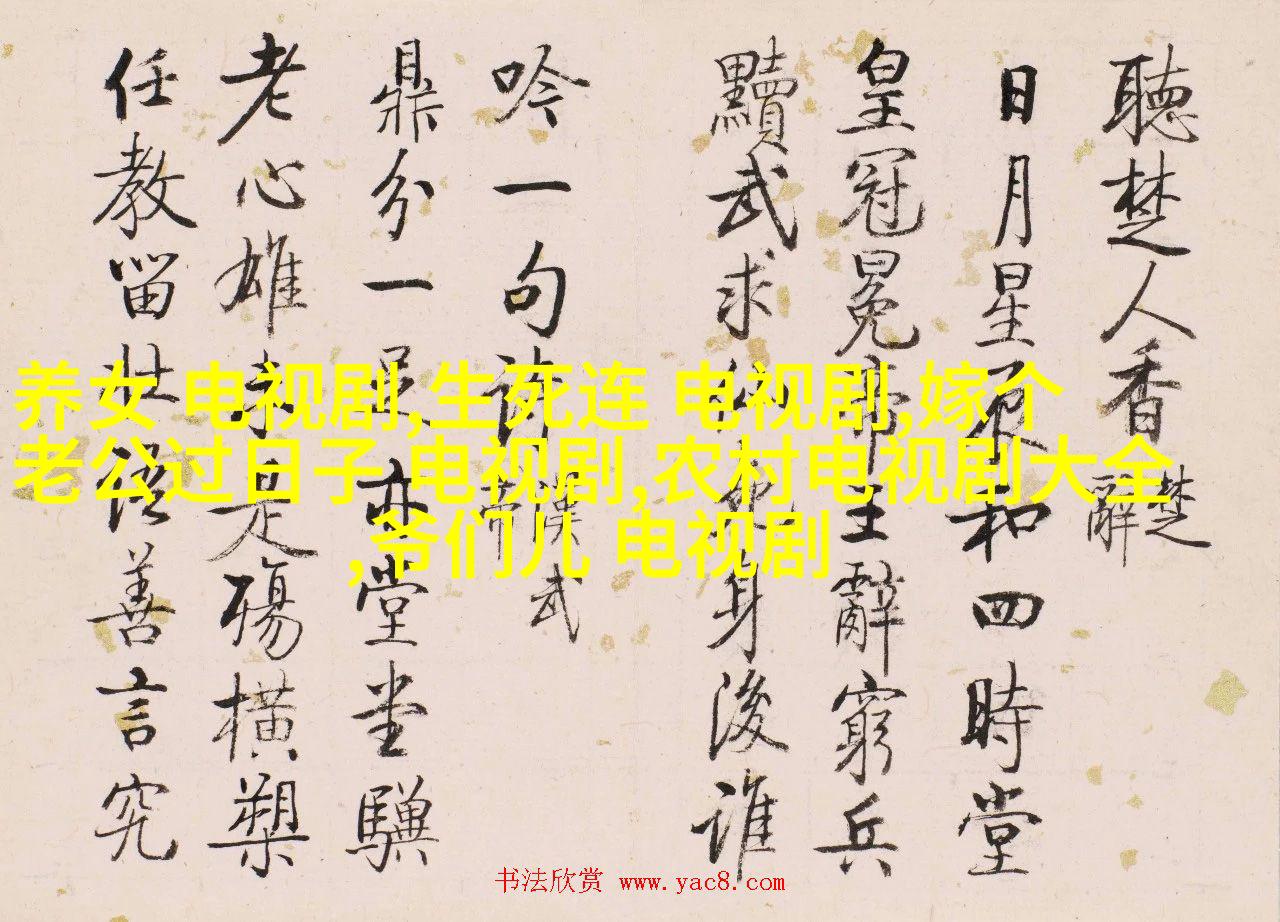 聽楚人香
楚辭
日月星辰和四時堂
皇冠冕帝王辭窮兵
黷武求身後誰
吟一句詩
漢武
帝
鼎分一足亦堂堂驥
老心雄未是殤橫槊
任教留壯語善言究
养女 电视剧,生死连 电视剧,嫁个
老公过日子 电视剧,农村电视剧大全
,爷们儿 电视剧
书法欣赏 www.yac8.com